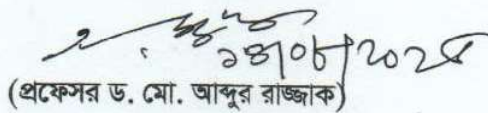 ২৪/০৮/২০২৫
(প্রফেসর ড. মো. আব্দুর রাজ্জাক)